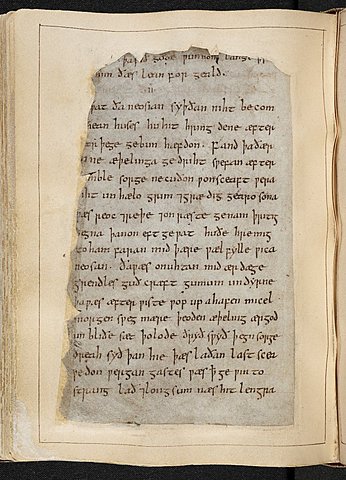 þa ƿið gode ƿunnon lange þr
him ðæs lean forgeald.
.ii.
ƿat ða neosian syþðan niht becom
hean huses hu hit hring dene æfter
orþege gebun hæfdon. Fand þa ðær
inne æþelinga gedriht sƿefan æfter
symble sorge ne cuðon ƿonsceaft ƿera
ƿiht unhælo grim ⁊ grædig gearo sona
ƿæs reoc ⁊ reþe ⁊ on ræste genam þritig
þegna þanon eft geƿat huðe hremig
to ham faran mid þære ƿæl fylle ƿica
neosan. ða ƿæs on uhtan mid ær dæge
grendles guð cræft gumum undyrne
þa ƿæs æfter ƿiste ƿop up ahafen micel
morgen sƿeg mære þeoden æþeling ærgod
unbliðe sæt þolode ðryð sƿyð þegn sorge
dreah syðþan hie þæs laðan last scea
ƿedon ƿergan gastes ƿæs ꝥ ge ƿin to
strang lað ⁊ longsum næs hit lengra